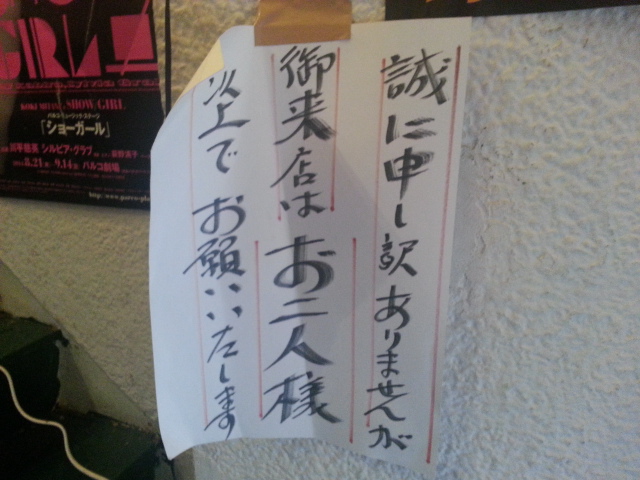 誠に申し訳ありませんが
御来店はお二人様
以上でお願いいたします
GIRL
KOKI MITANI SHOW GIRL
パルコ・ミュージック・ステージ
「ショーガール」
川平慈英 シルビア・グラブ
8.21 9.14 パルコ劇場